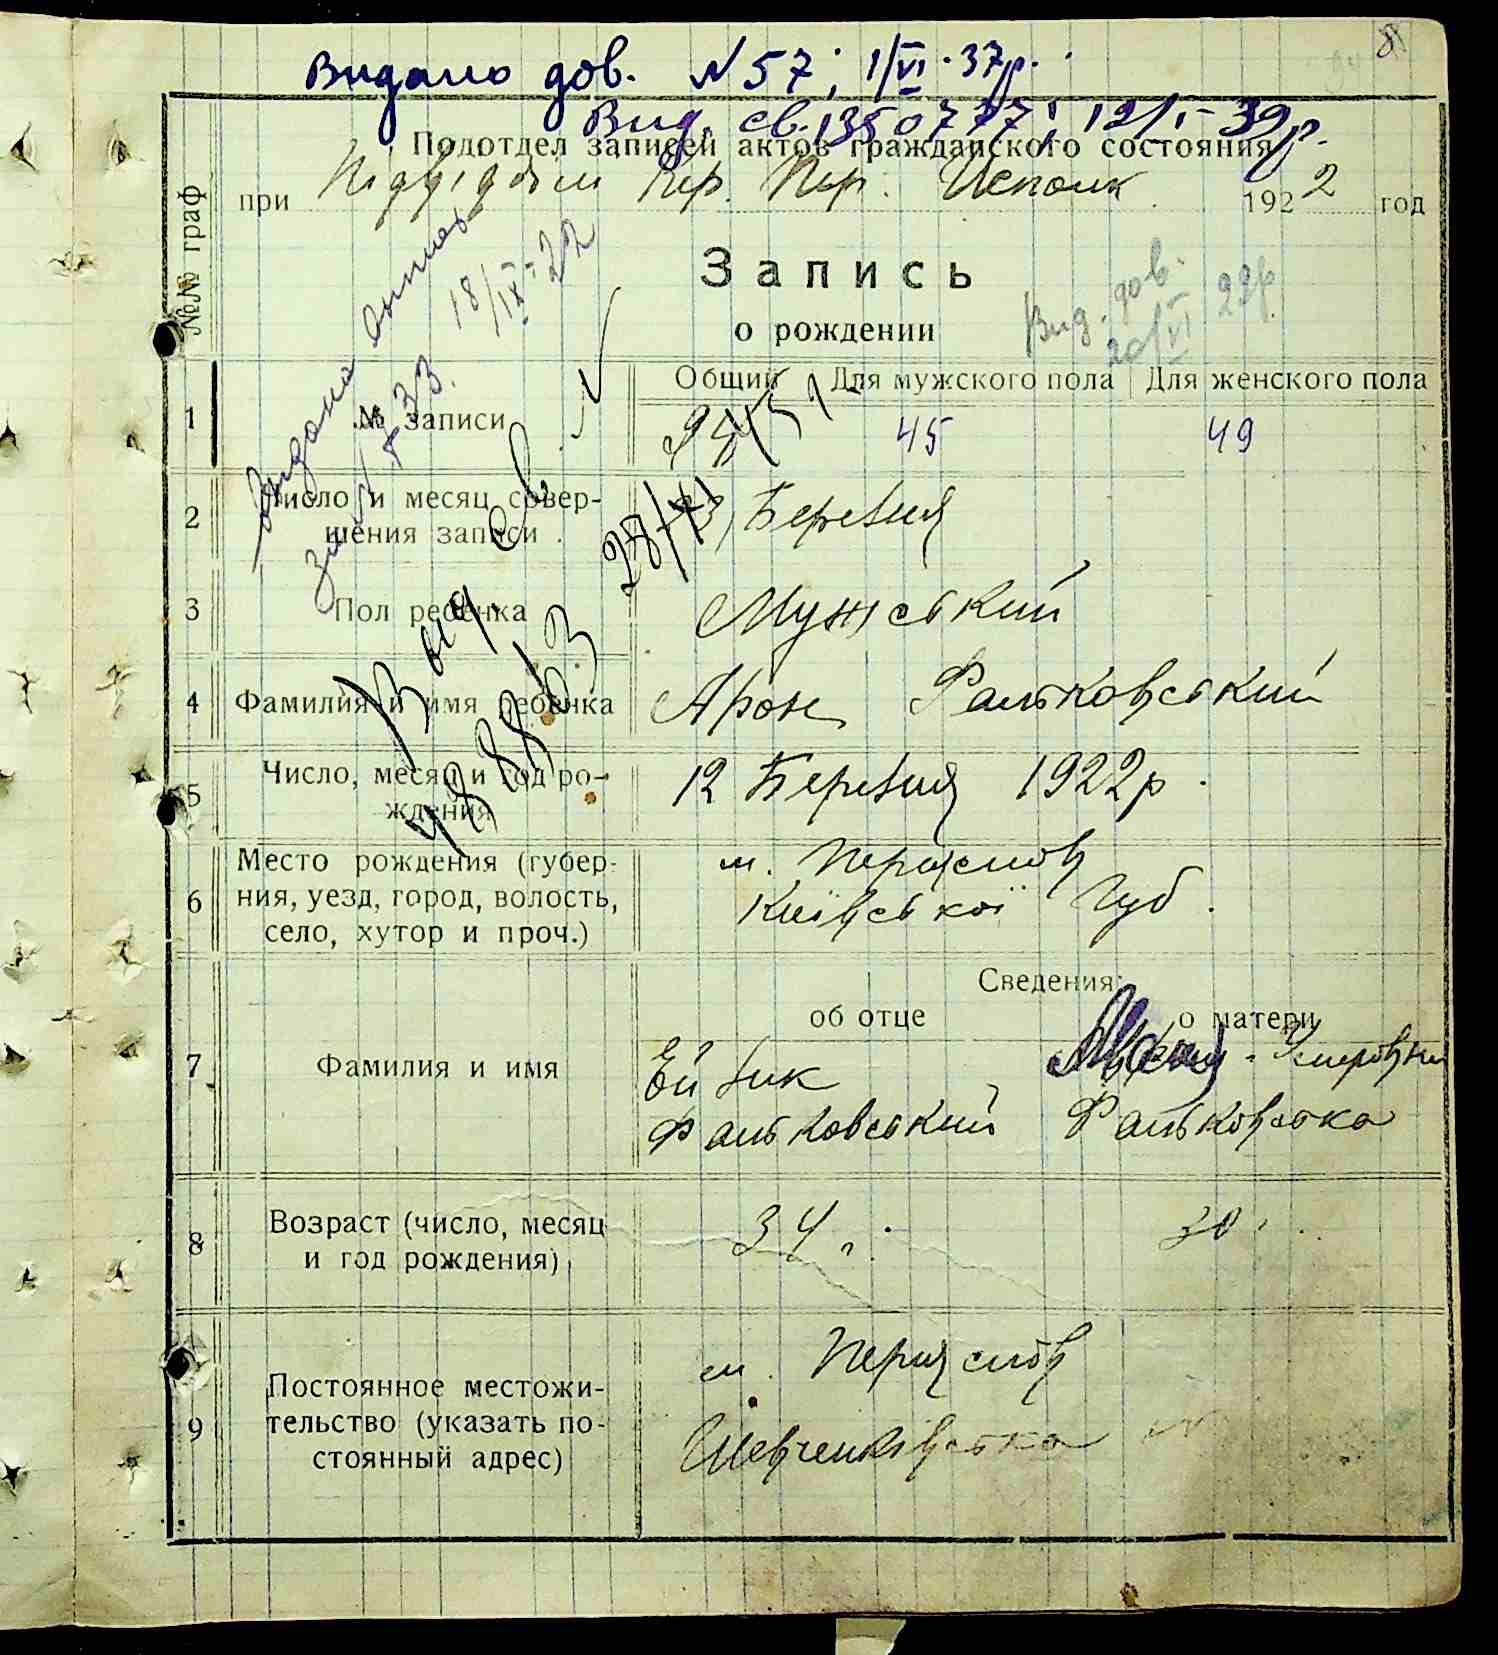 8
Видано дов. N 57; 1/VI. 37р.
Вид. св. 1350777; 12/I - 39р.
Подотдел записей актов гражданского состояния
при Пер. Исполк 1922 год
№№ граф
Запись
о рождении
Видано
18/IX - 22
Вид. дов.
20/VI 22р.
Общий Для мужского пола Для женского пола
1 № записи 94 45 49
2 Число и месяц совер-
шения записи 23 Березня
3 Пол ребенка Мужський
4 Фамилия и имя ребенка Арон Фальковський
5 Число, месяц и год ро-
ждения 12 Березня 1922р.
6 Место рождения (губер-
ния, уезд, город, волость,
село, хутор и проч.)
м. Переяслов
Київської Губ.
Сведения:
об отце о матери
7 Фамилия и имя
Ейзик
Фальковський Фальковська
8 Возраст (число, месяц
и год рождения)
34 30
9 Постоянное местожи-
тельство (указать по-
стоянный адрес)
м. Переяслов
Шевченківська
Вид. св.
28/XI